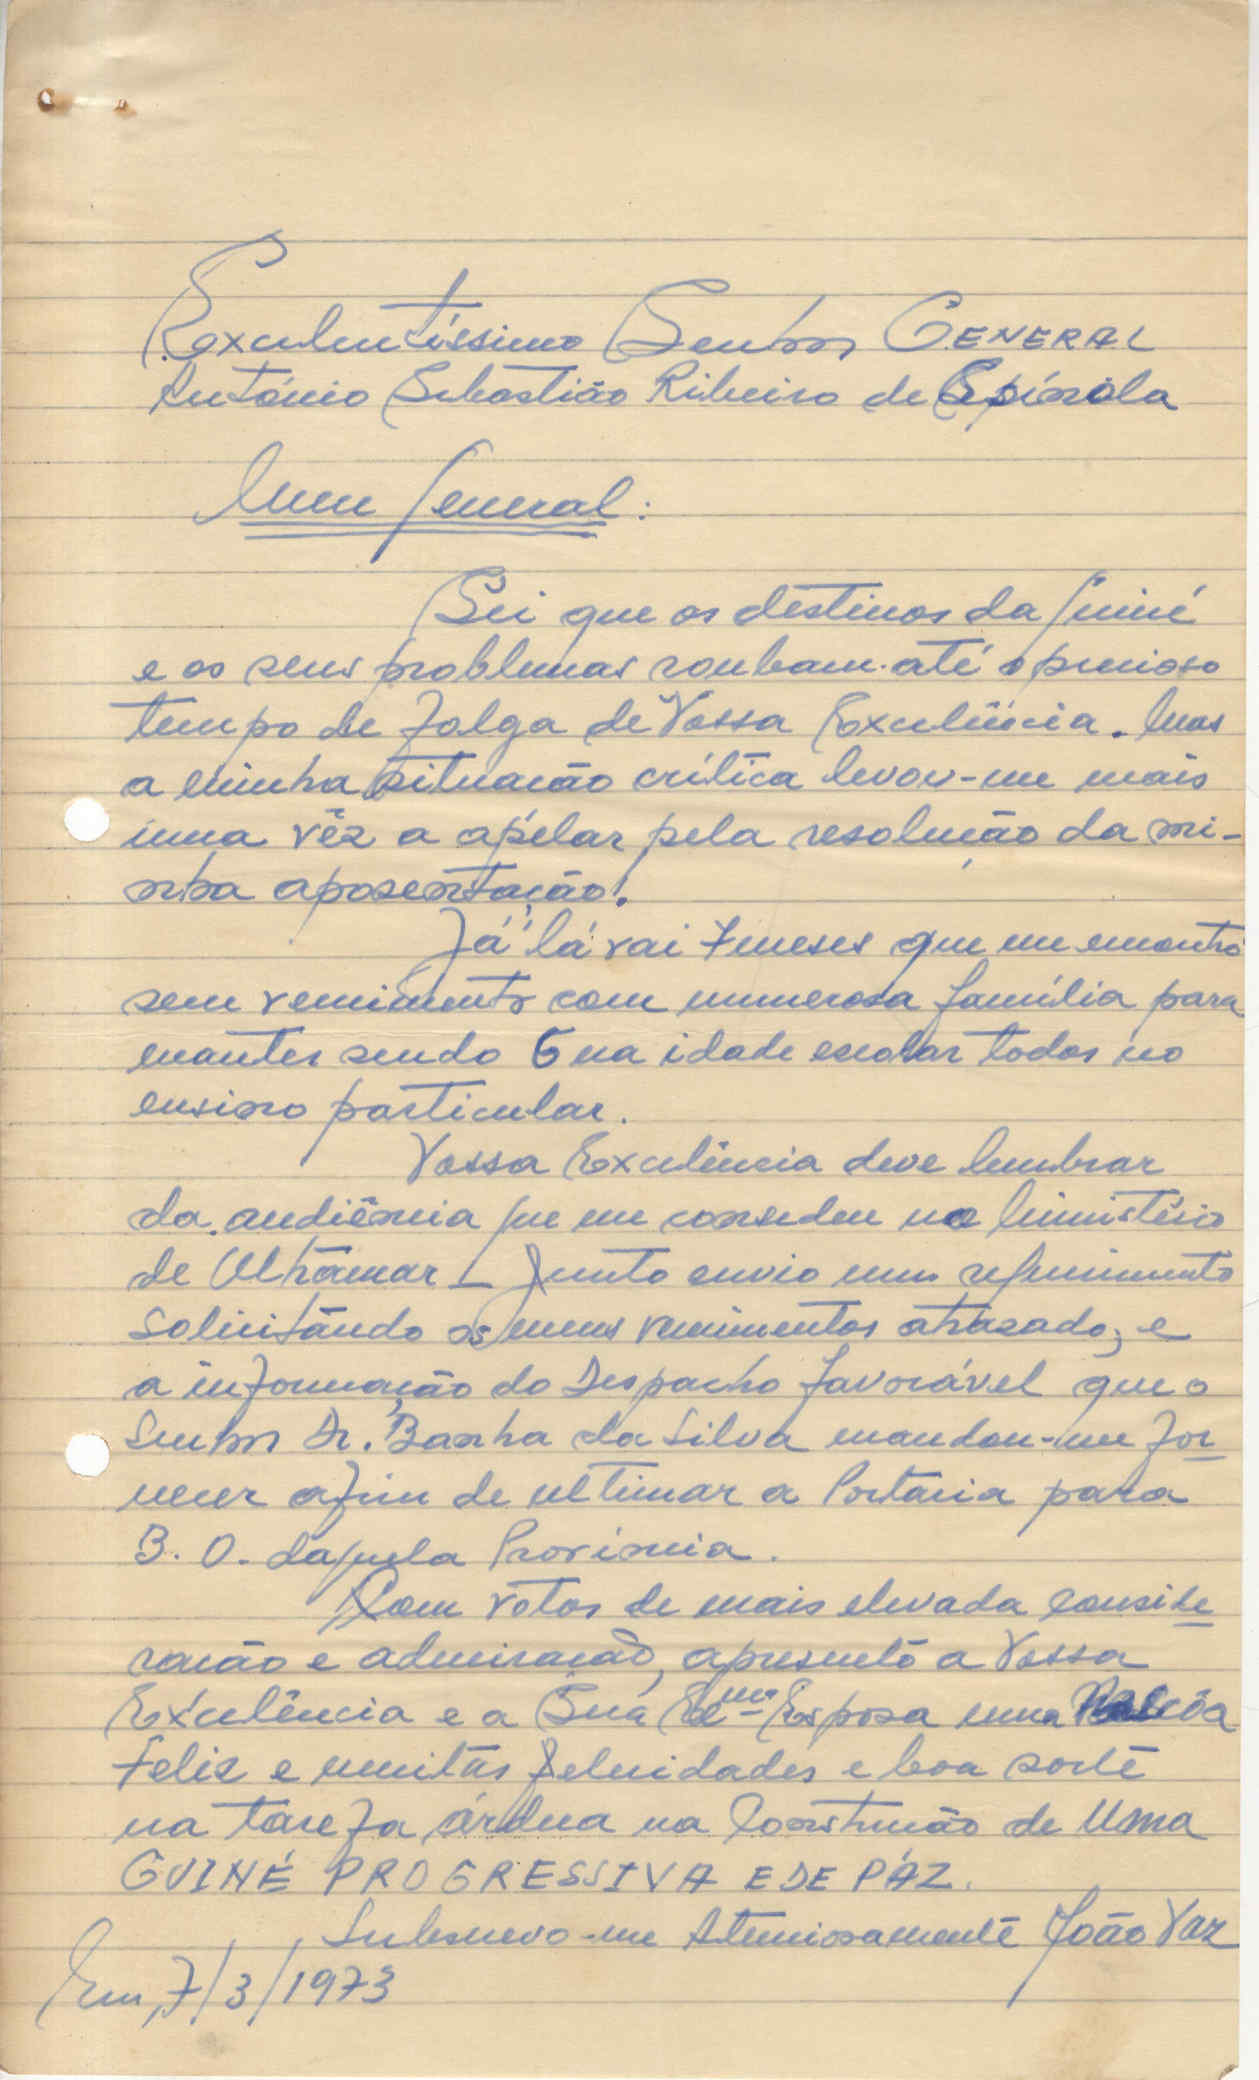 Excelentíssimo Senhor GENERAL
António Sebastião Ribeiro de Spínola
Meu General:
Sei que os destinos da Guiné
e os seus problemas roubam até o precioso
tempo de folga de Vossa Excelência. Mas
a minha situação crítica levou-me mais
uma vêz a apélar pela resolução da mi-
nha aposentação.
Já lá vai 7 meses que me encontro
sem vencimento com numerosa família para
manter sendo 6 na idade escolar todos no
ensino particular.
Vossa Excelência deve lembrar
da audiência que me concedeu no Ministério
de Ultramar _ Junto envio um requerimento
solicitândo os meus vencimentos atrazado, e
a informação do Despacho favorável que o
Senhor Dr. Banha da Silva mandou-me for
necer afim de ultimar a Portaria para
B. O. daquela Província.
Com votos de mais elevada conside
ração e admiração, apresento a Vossa
Excelência e a Sua Exma Esposa uma Pascôa
Feliz e muitas felicidades e boa sorte
na tarefa árdua na Construção de Uma
GUINÉ PROGRESSIVA E DE PÁZ.
Subscrevo-me Atenciosamente João Vaz
Em, 7/3/1973